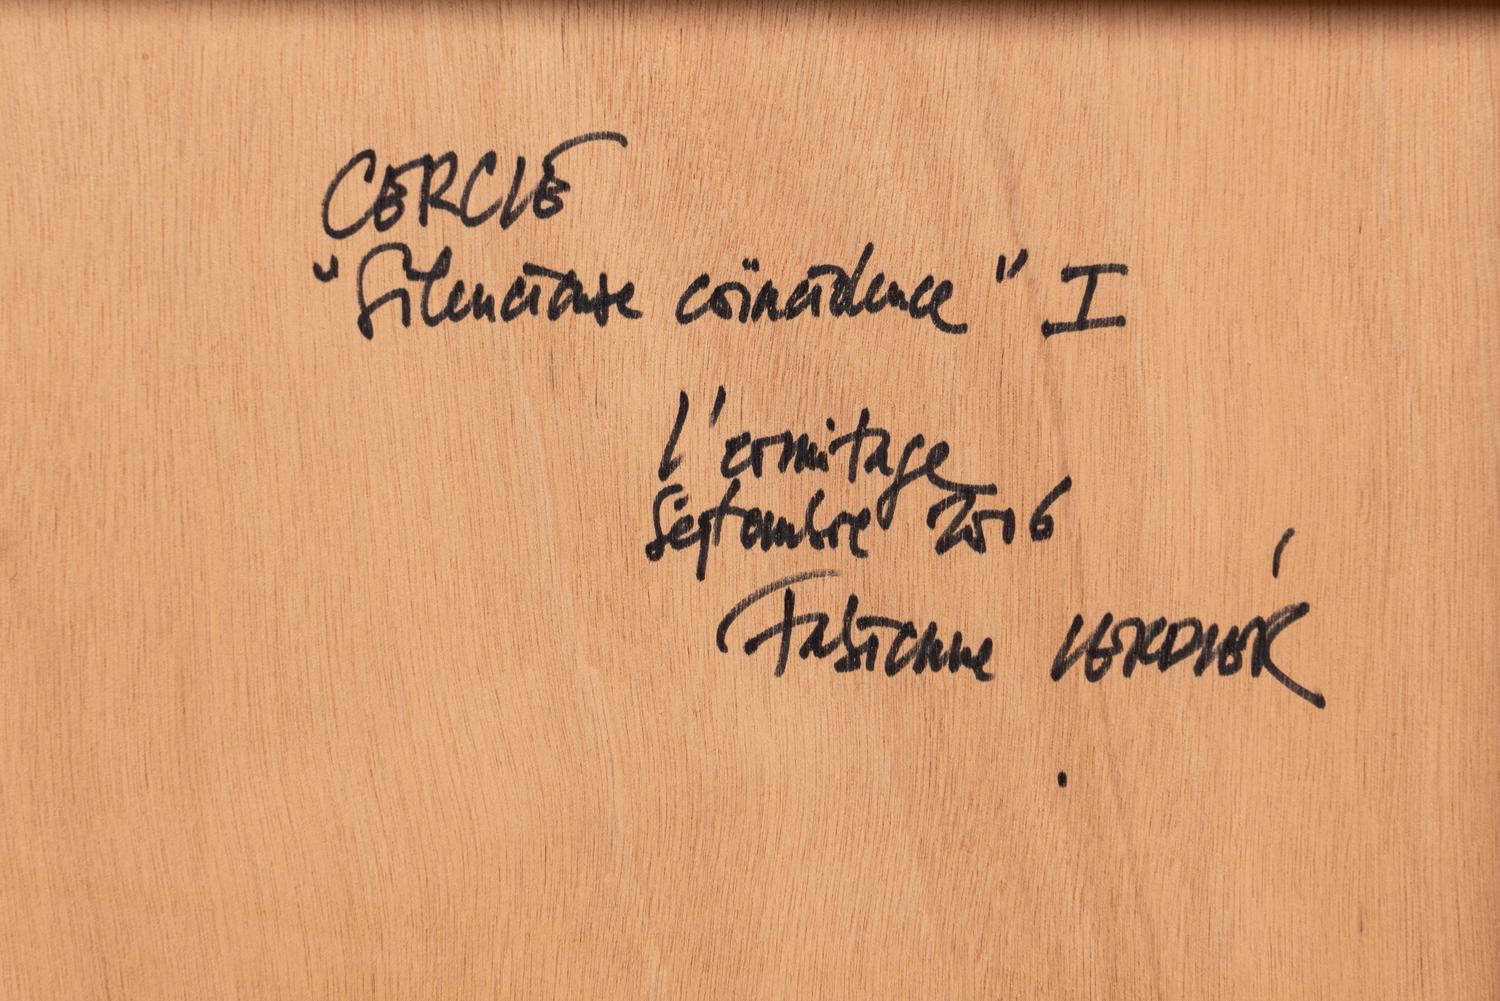 CERCLE
"Silencieuse coïncidence" I
L'ermitage
Septembre 2016
Fabienne VERDIER